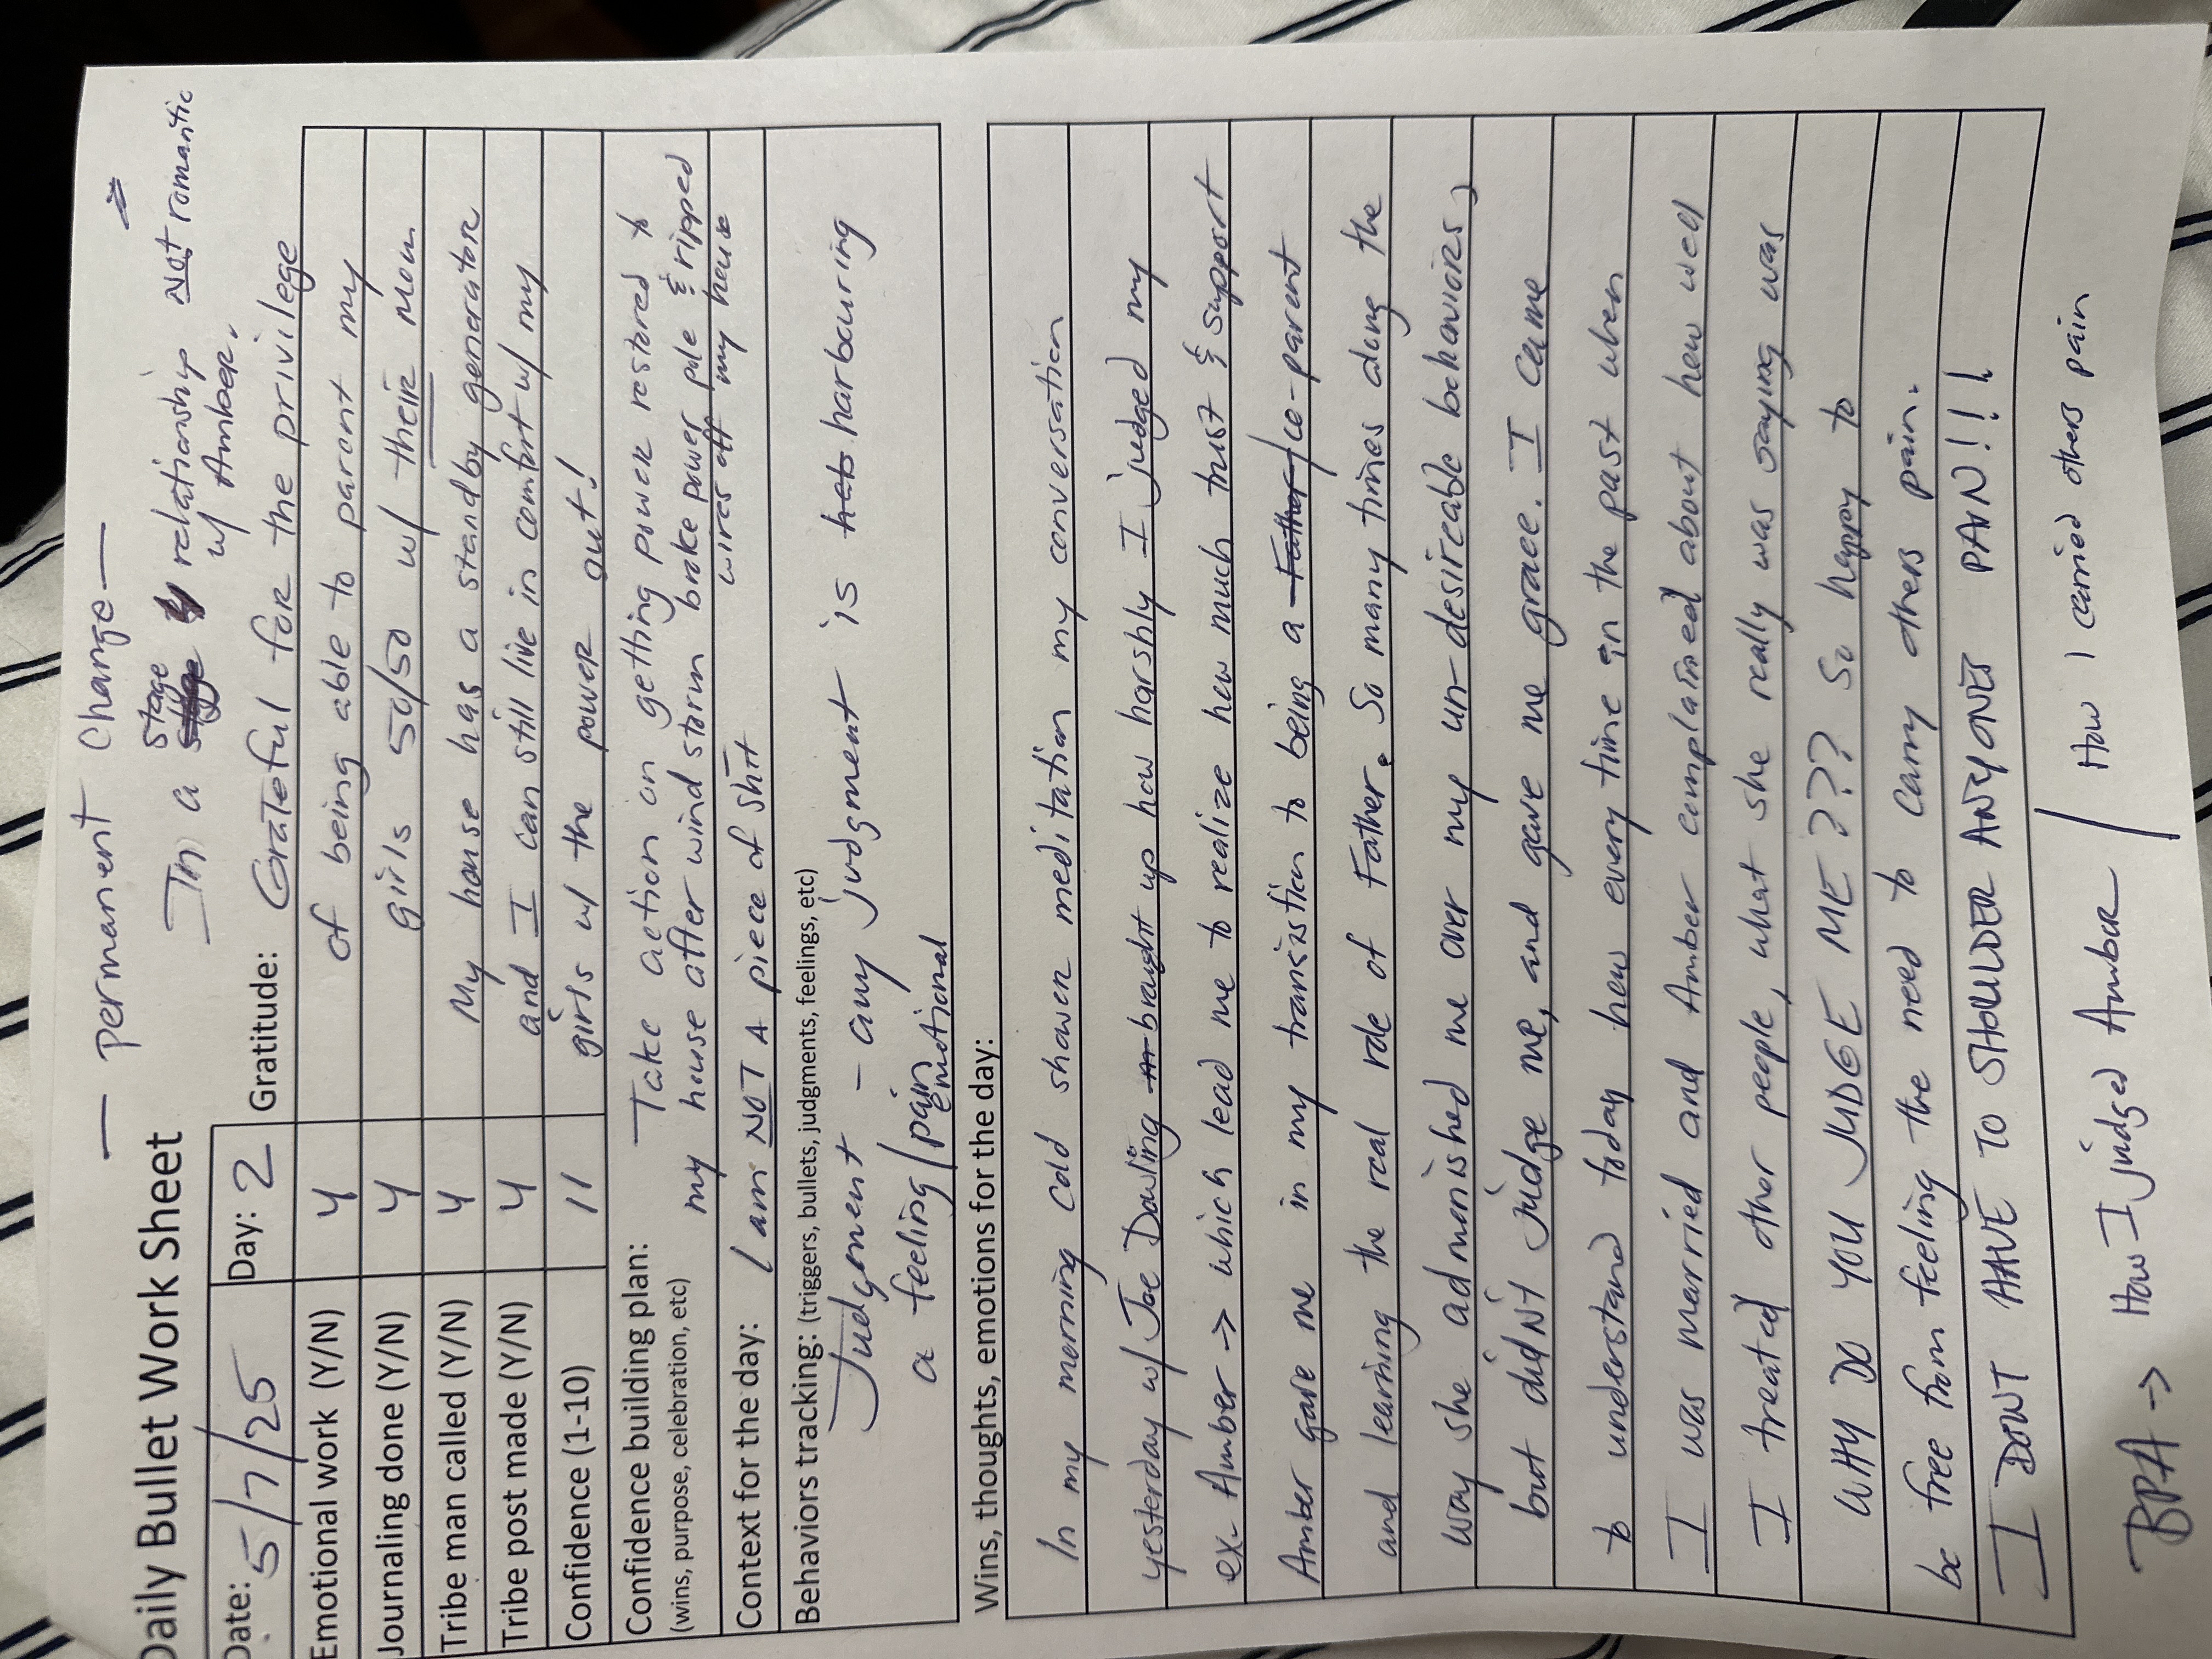 — Permanent Change —
In a stage relationship Not romantic
w/ Amber.
Daily Bullet Work Sheet
Date: 5/7/25 Day: 2 Gratitude: Grateful for the privilege
Emotional work (Y/N) Y of being able to parent my
Journaling done (Y/N) Y girls 50/50 w/ their mom
Tribe man called (Y/N) Y My house has a standby generator
Tribe post made (Y/N) Y and I can still live in comfort w/ my
Confidence (1-10) 11 girls w/ the power out!
Confidence building plan: Take action on getting power restored to
(wins, purpose, celebration, etc) my house after wind storm brake power pole & ripped
wires off my house
Context for the day: I am NOT A piece of shit
Behaviors tracking: (triggers, bullets, judgments, feelings, etc)
Judgement - any judgment is harbouring
a feeling/pain
emotional
Wins, thoughts, emotions for the day:
In my morning cold shower meditation my conversation
yesterday w/ Joe Dowling brought up how harshly I judged my
ex- Amber -> which lead me to realize how much trust & support
Amber gave me in my transistion to being a Father/co-parent
and learning the real role of Father. So many times along the
way she admonished me over my un-desireable behaviors,
but didNt judge me, and gave me grace. I came
to understand today how every time in the past when
I was married and Amber complained about how well
I treated other people, what she really was saying was
WHY DO YOU JUDGE ME??? So happy to
be free from feeling the need to carry others pain.
I DONT HAVE TO SHOULDER ANYONES PAIN!!!
BPA -> How I judged Amber / How I carried others pain